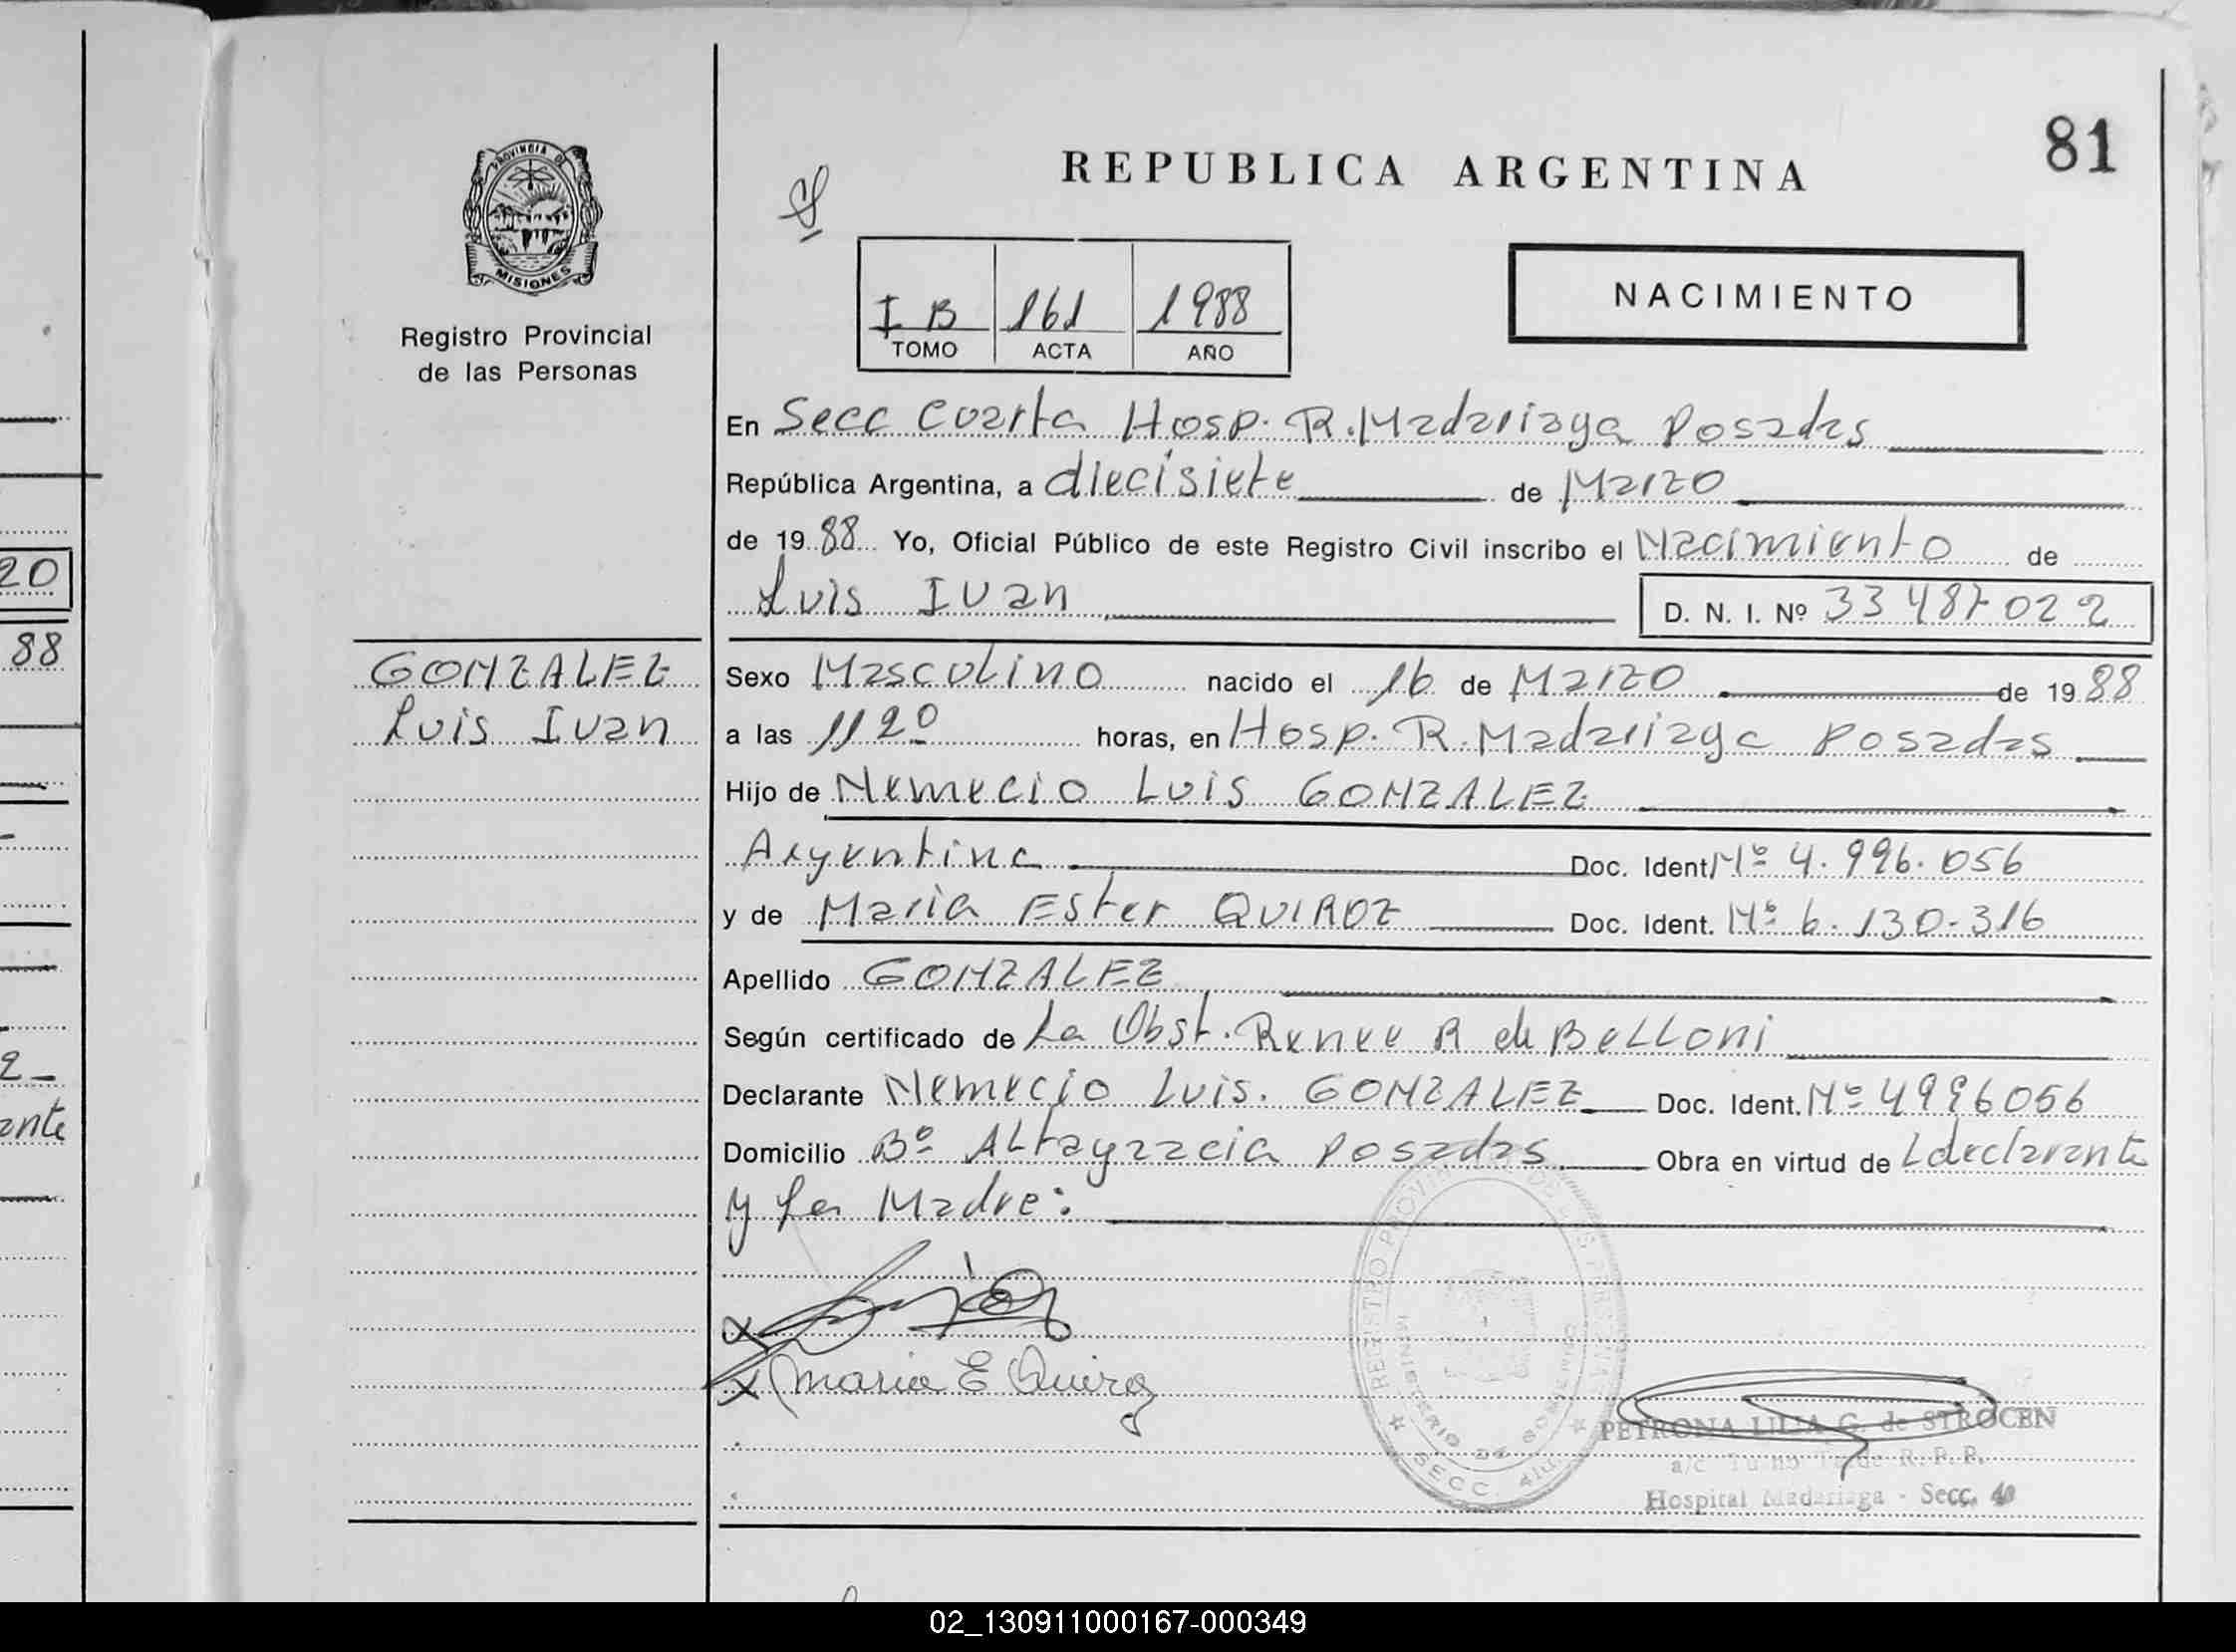 20
88
2
ante
PROVINCIA DE
MISIONES
Registro Provincial
de las Personas
GONZALEZ
Luis Ivan
81
REPUBLICA ARGENTINA
I B 161 1988
TOMO ACTA AÑO
NACIMIENTO
En Secc Cuarta Hosp. R. Madariaga Posadas
República Argentina, a diecisiete de Marzo
de 1988 Yo, Oficial Público de este Registro Civil inscribo el Nacimiento de
Luis Ivan D. N. I. Nº 33487022
Sexo Masculino nacido el 16 de Marzo de 1988
a las 1120 horas, en Hosp. R. Madariaga Posadas
Hijo de Nemecio Luis GONZALEZ
Argentina Doc. Ident Nº 4.996.056
y de Maria Ester QUIROZ Doc. Ident. Nº 6.130.316
Apellido GONZALEZ
Según certificado de La Obst. Renee R de Belloni
Declarante Nemecio Luis. GONZALEZ Doc. Ident. Nº 4996056
Domicilio Bº Altagracia Posadas Obra en virtud de L declarante
y La Madre:
x
x Maria E Quiroz
REGISTRO PROVINCIAL DE LAS PERSONAS
MINISTERIO DE GOBIERNO
SECC. 4ta
PETRONA LILIA G. de STROCEN
a/c R. P. P.
Hospital Madariaga - Secc.
02_130911000167-000349